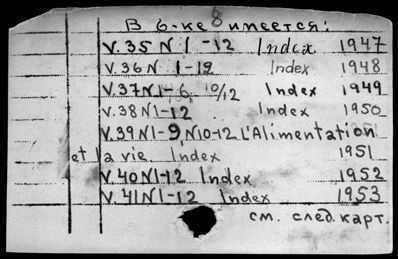 В б-ке имеется:
V.35 N 1 -12 Index 1947
V.36 N 1-12 Index 1948
V.37 N 1-6, 10/12 Index 1949
V.38 N 1-12 Index 1950
V.39 N 1-9, N 10-12 L'Alimentation
et la vie Index 1951
V.40 N 1-12 Index 1952
V.41 N 1-12 Index 1953
см. след. карт.